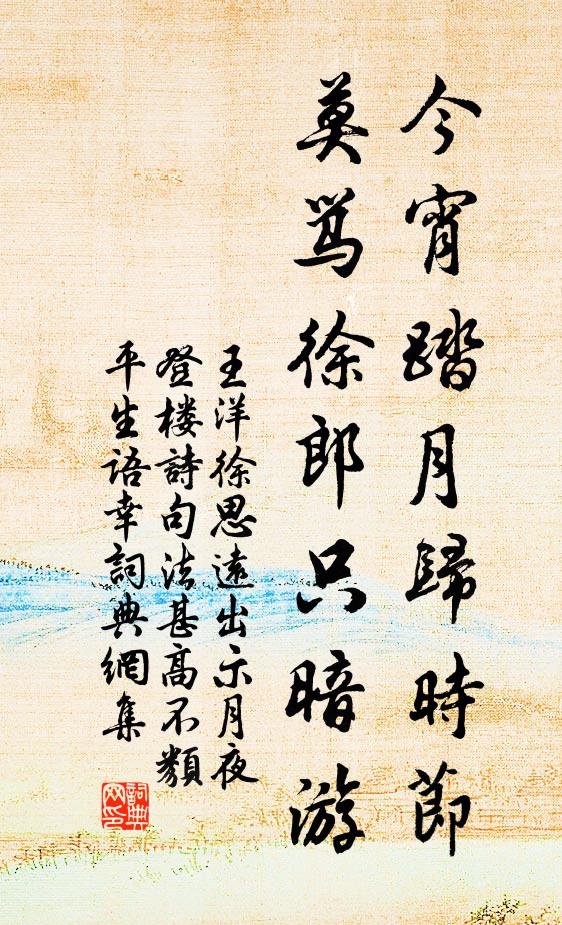 今宵踏月歸時節
莫骂徐郎只暗游
王洋徐思遠出示月夜
登楼詩句法甚高不類
平生語幸詞典網集
詞典
网印